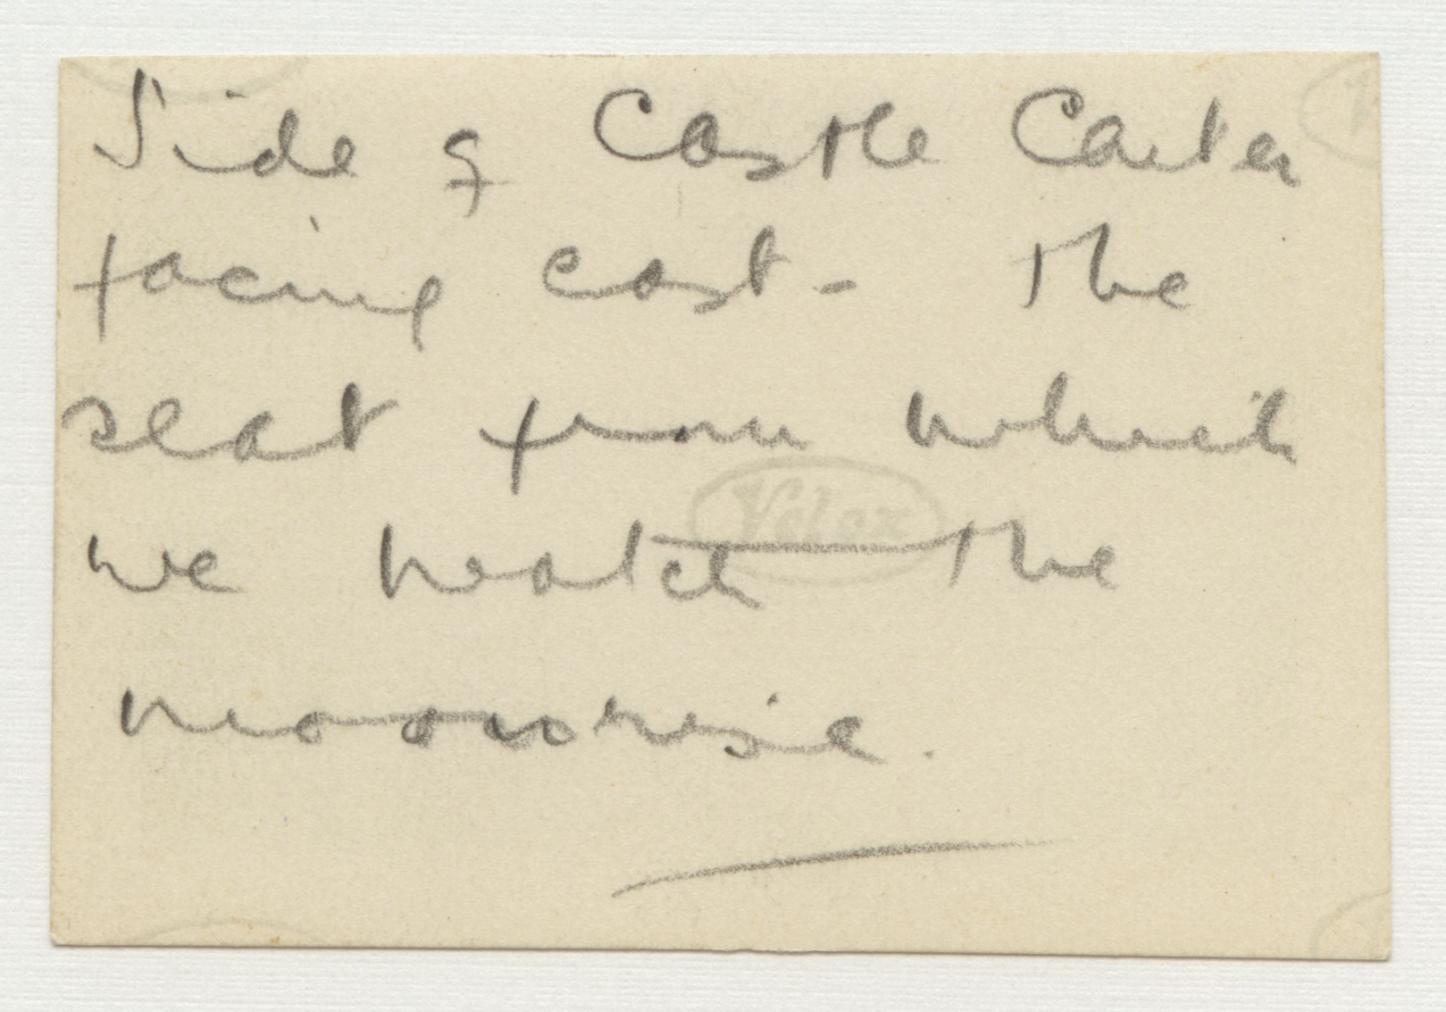 Side of Castle Carter
facing east - the
seat from which
we watch the
Velox
moonrise.